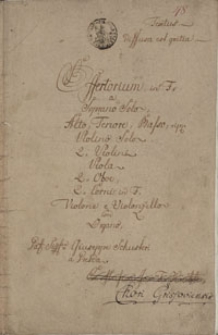 Diffusa est gratia
Offertorium in F.
a
Soprano Solo
Alto, Tenore, Basso
Violino Solo
2. Violini
Viola
2. Oboe
2. Corni in F.
Violone e Violoncello
con
Organo
Giuseppe Schuster
Chori Gregoriani